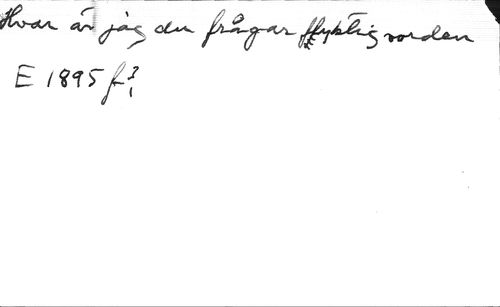 Hvar är jag du frågar flyktig vorden
E 1895 f. 3/1